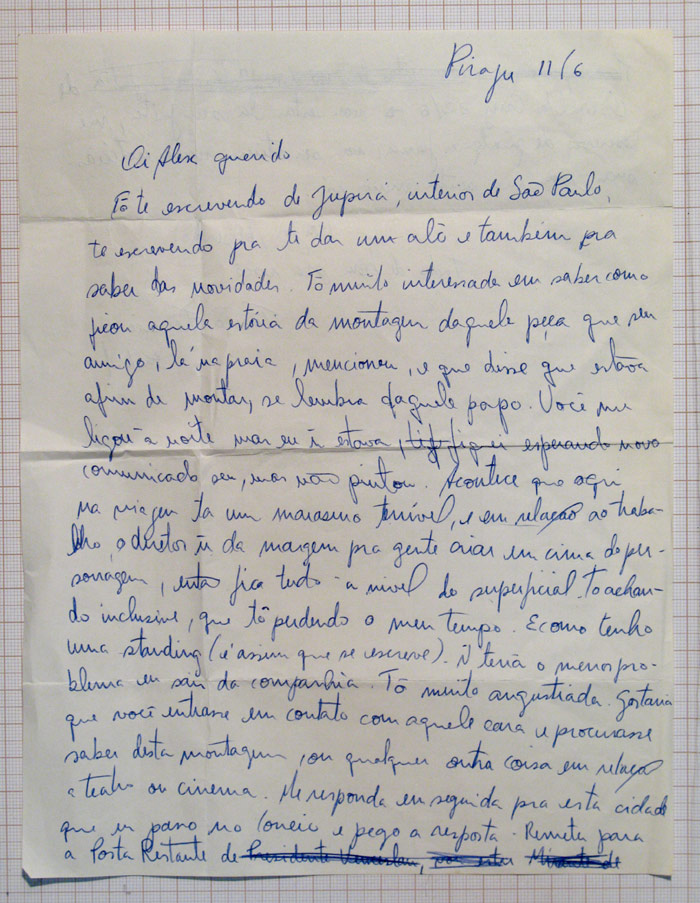 Piraju 11/6
Oi Alex querido
Tô te escrevendo de Jupirá, interior de São Paulo,
te escrevendo pra te dar um alô e também pra
saber das novidades. Tô muito interessada em saber como
ficou aquela estória da montagem daquele peça que seu
amigo, lá na praia, mencionou, e que disse que estava
afim de montar, se lembra daquele papo. Você me
ligou à noite mas eu ñ estava, fiquei esperando novo
comunicado seu, mas não pintou. Acontece que aqui
na viagem ta um marasmo terrível, e em relação ao traba-
lho, o diretor ñ da margem pra gente criar em cima do per-
sonagem, fica tudo a nível do superficial. To achan-
do inclusive, que tô perdendo o meu tempo. E como tenho
uma standing (é assim que se escreve). Ñ teria o menor pro-
blema em sair da companhia. Tô muito angustiada. Gostaria
que você entrasse em contato com aquele cara e procurasse
saber desta montagem, ou qualquer outra coisa em relação
a teatro ou cinema. Me responda em seguida pra esta cidade
que eu passo no Correio e pego a resposta. Remeta para
a Posta Restante de Presidente Venceslau, por estar